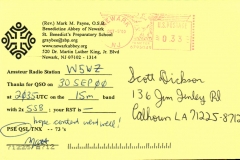 (Rev.) Mark M. Payne, O.S.B.
Benedictine Abbey of Newark
St. Benedict's Preparatory School
graybee@sbp.org
www.newarkabbey.org
720 Dr. Martin Luther King, Jr. Blvd
Newark, NJ 07102 - 1314
Amateur Radio Station W5WZ
Thanks for QSO on 30 SEP 00
at 2035 UTC on the 15m band
with 2x SSB : your RST is
hope contest went well!
PSE QSL/TNX -- 73's
Matt
Scott Dickson
136 Jim Finley Rd
Calhoun LA 71225-8712